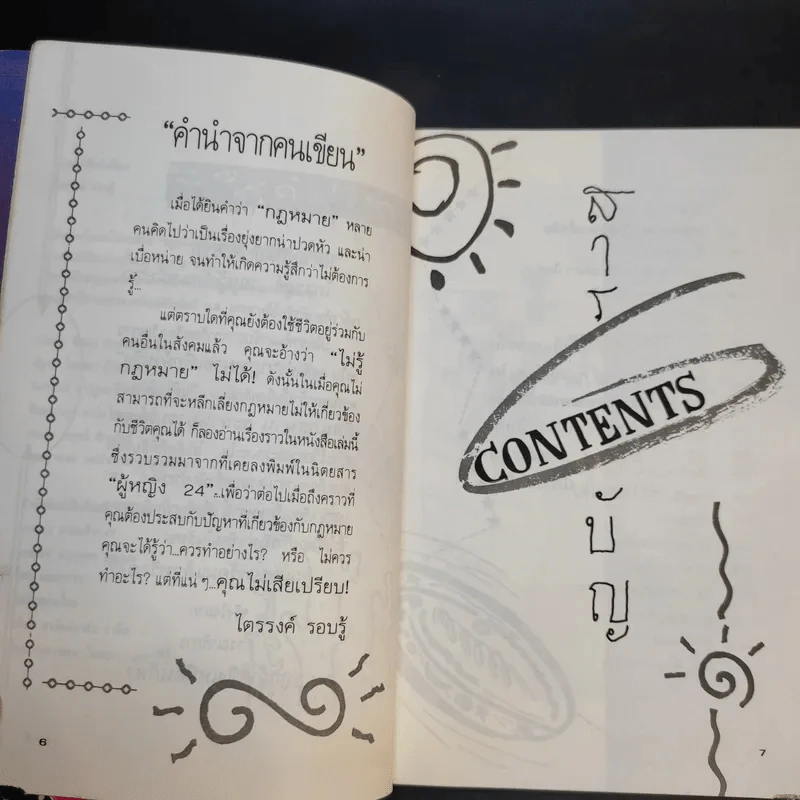 “คำนำจากคนเขียน”
เมื่อได้ยินคำว่า “กฎหมาย” หลาย
คนคิดไปว่าเป็นเรื่องยุ่งยากน่าปวดหัว และน่า
เบื่อหน่าย จนทำให้เกิดความรู้สึกว่าไม่ต้องการ
รู้...
แต่ตราบใดที่คุณยังต้องใช้ชีวิตอยู่ร่วมกับ
คนอื่นในสังคมแล้ว คุณจะอ้างว่า “ไม่รู้
กฎหมาย” ไม่ได้! ดังนั้นในเมื่อคุณไม่
สามารถที่จะหลีกเลี่ยงกฎหมายไม่ให้เกี่ยวข้อง
กับชีวิตคุณได้ ก็ลองอ่านเรื่องราวในหนังสือเล่มนี้
ซึ่งรวบรวมมาจากที่เคยลงพิมพ์ในนิตยสาร
“ผู้หญิง 24”...เพื่อว่าต่อไปเมื่อถึงคราวที่
คุณต้องประสบกับปัญหาที่เกี่ยวข้องกับกฎหมาย
คุณจะได้รู้ว่า...ควรทำอย่างไร? หรือ ไม่ควร
ทำอะไร? แต่ที่แน่ๆ...คุณไม่เสียเปรียบ!
ไตรรงค์ รอบรู้
6
สาร
CONTENTS
บัญ
7